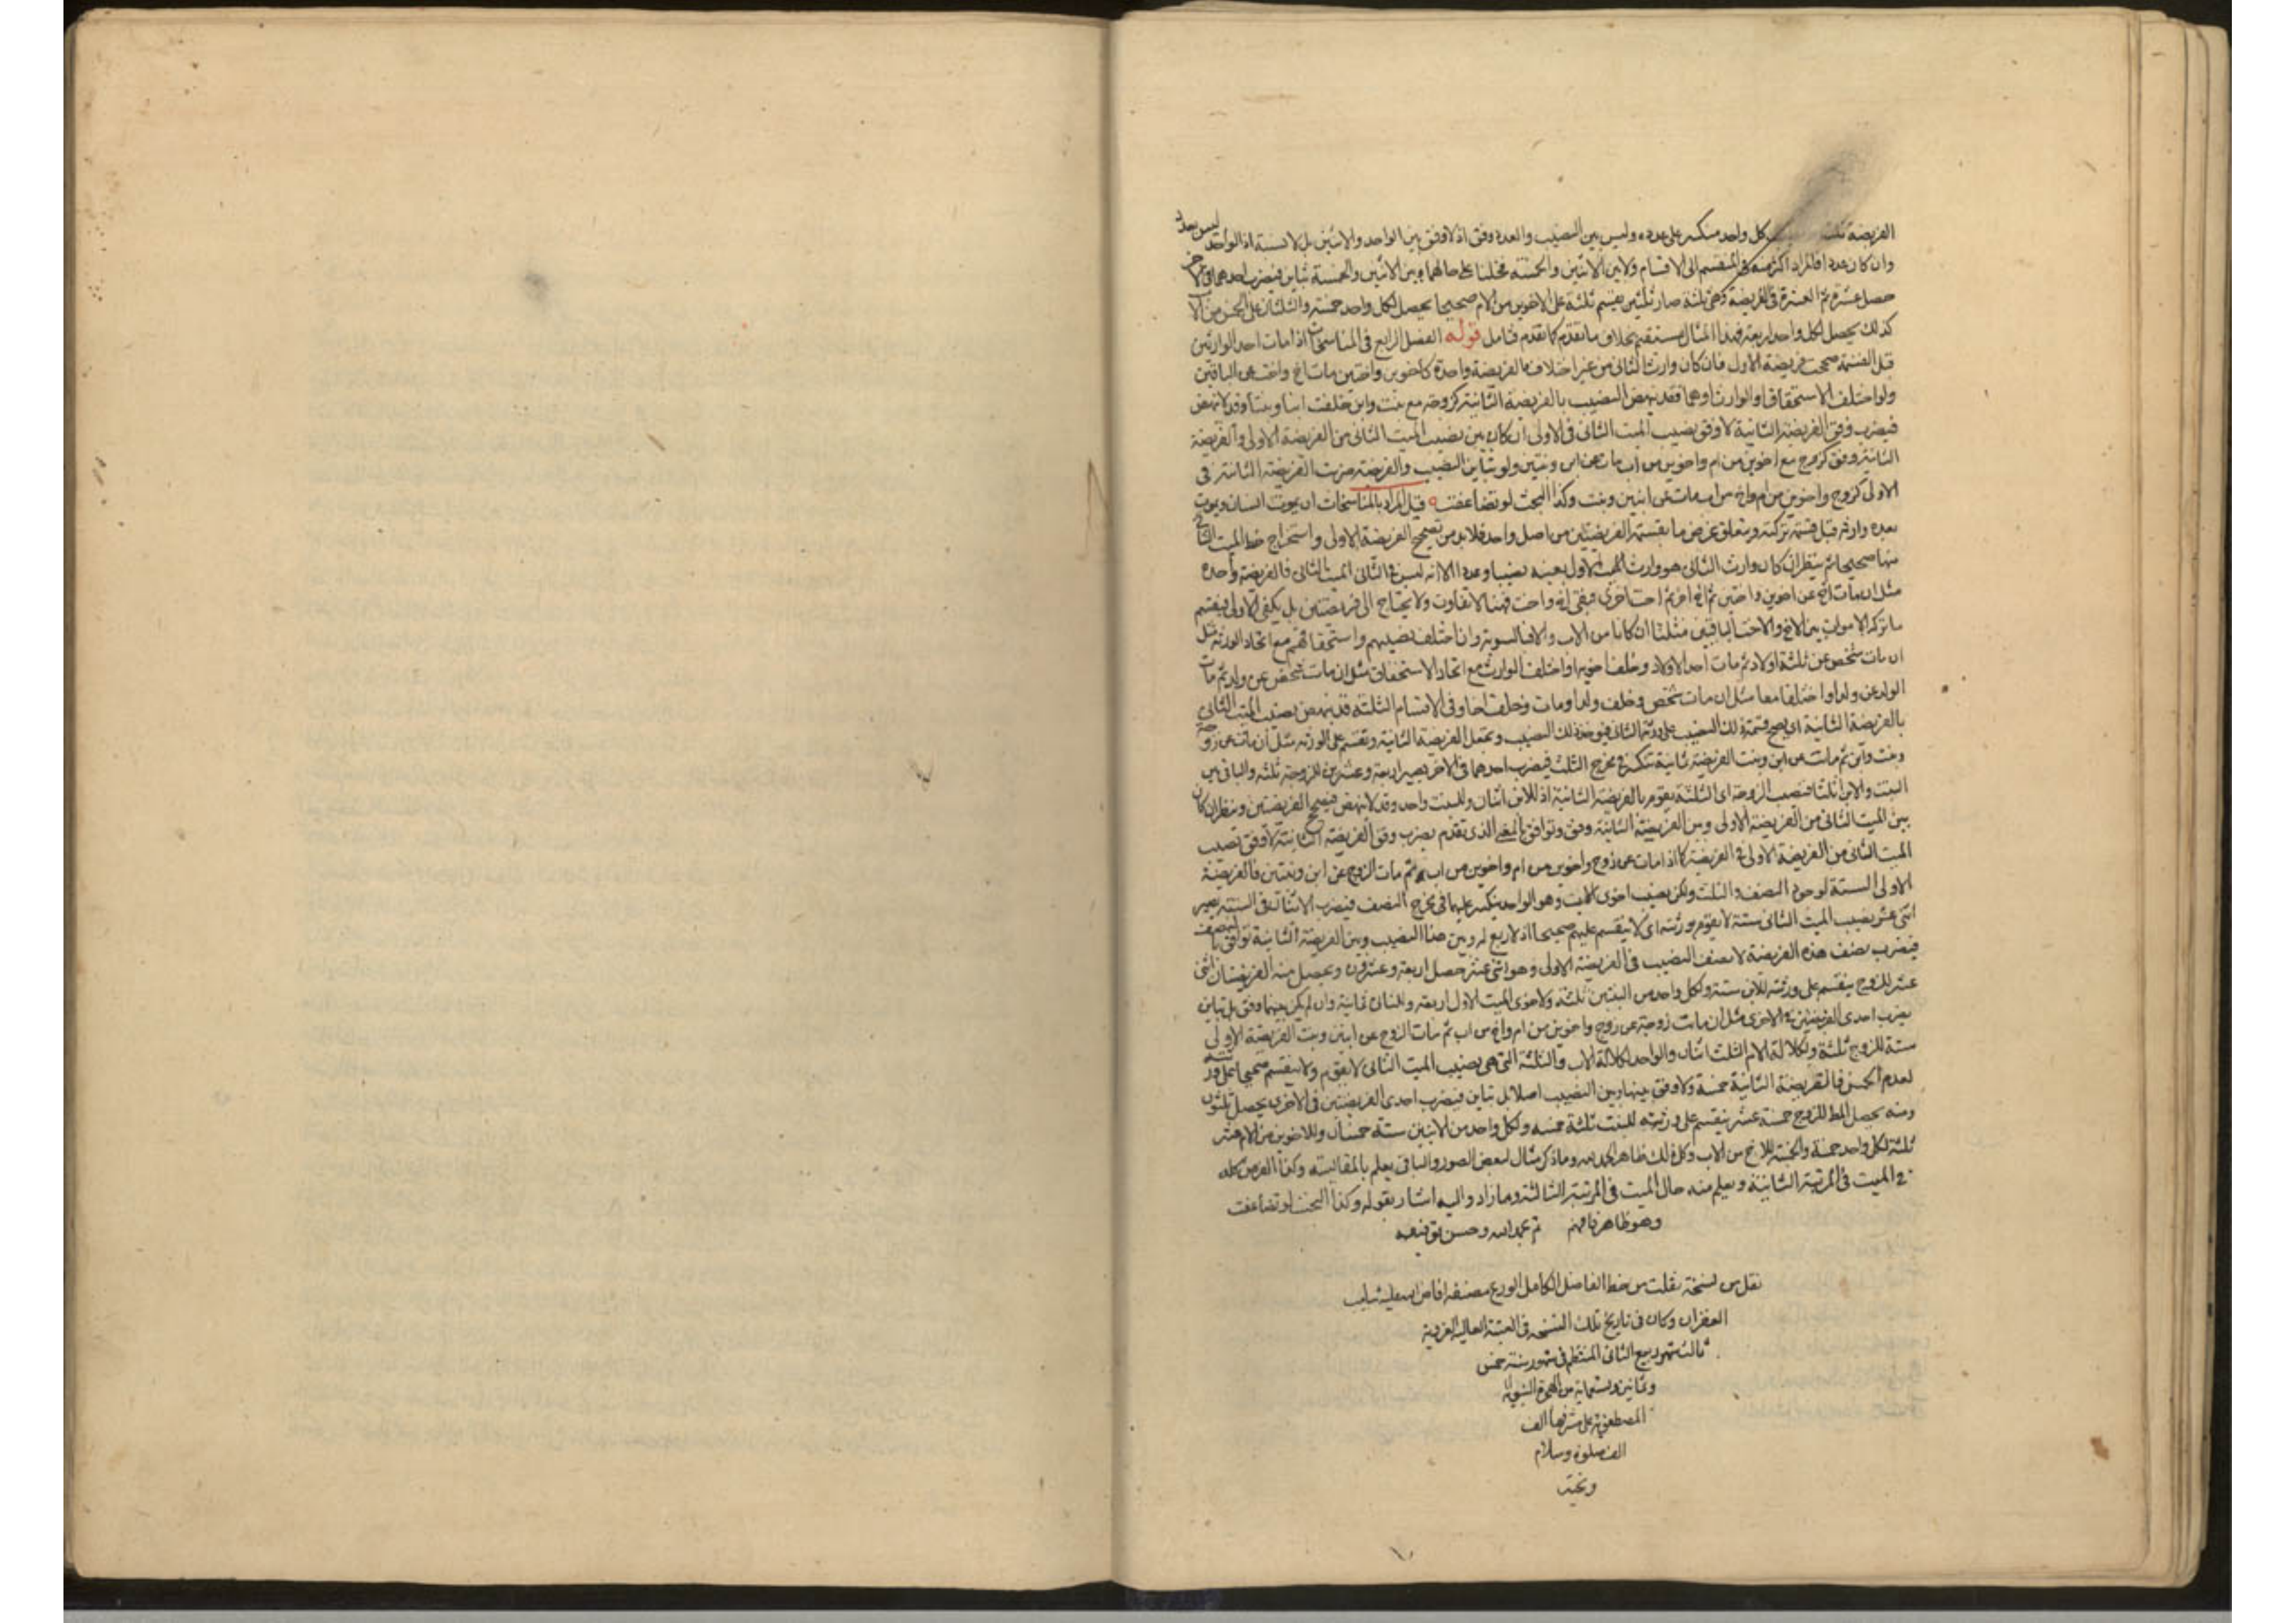 الفريضة ثلثة كل واحد منكسر على عدده وليس بين النصيب والعدد وفق اذ لا وفق بين الواحد والاثنين بل لا نسبة اذ الواحد ليس بعدد
وان كان عددا فالمراد اكثر منه في المنقسم الى الاقسام ولا بين الاثنين والخمسة فخلينا على حالهما وبين الاثنين والخمسة تباين فيضرب احدهما في الآخر
حصل عشرة ثم العشرة في الفريضة وهي ثلثة صار ثلثين يقسم ثلثة على الاخوين من الام صحيحا يحصل لكل واحد خمسة والثلثان على الخمس من الاب
كذلك يحصل لكل واحد اربعة فهذا المثال مستقيم بخلاف ما تقدم كما تقدم فتامل قوله الفصل الرابع في المناسخات اذا مات احد الوارثين
قبل القسمة صحت فريضة الاول فان كان وارث الثاني من غير اختلاف فالفريضة واحدة كاخوين واختين مات اخ واخت عن الباقين
ولو اختلف الاستحقاق او الوارث او هما فقد ينهض النصيب بالفريضة الثانية كزوجة مع بنت وابن خلفت ابنا وبنتا وقد لا ينهض
فيضرب وفق الفريضة الثانية لا وفق نصيب الميت الثاني في الاولى ان كان بين نصيب الميت الثاني من الفريضة الاولى والفريضة
الثانية وفق كزوج مع اخوين من ام واخوين من اب مات عن ابن وبنتين ولو تباين النصيب والفريضة ضربت الفريضة الثانية في
الاولى كزوج واخوين من ام واخ من اب مات عن ابنين وبنت وكذا البحث لو تضاعفت قيل المراد بالمناسخات ان يموت انسان ويموت
بعده وارثه قبل قسمة تركته ويتعلق غرض ما بقسمة الفريضتين من اصل واحد فلا بد من تصحيح الفريضة الاولى واستخراج حظ الميت الثاني
منها صحيحا ثم ينظر ان كان وارث الثاني هو وارث الميت الاول بعينه نصيبا وعددا الا انه ليس في الثاني الميت الثاني فالفريضة واحدة
مثل ان مات اخ عن اخوين واختين ثم اخ آخر ثم اخت اخرى فبقي اخ واخت فهنا لا تفاوت ولا يحتاج الى فريضتين بل يكفي الاولى فيقسم
ما تركه الاموات بين الاخ والاخت الباقيين مثلثا ان كانا من الاب والا فبالسوية وان اختلف نصيبهم واستحقاقهم مع اتحاد الورثة مثل
ان مات شخص عن ثلثة اولاد ثم مات احد الاولاد وخلف اخويه او اختلف الوارث مع اتحاد الاستحقاق مثل ان مات شخص عن ولد ثم مات
الولد عن ولد او اختلفا معا مثل ان مات شخص وخلف ولدا ومات وخلف اخا وفي الاقسام الثلثة قد ينهض نصيب الميت الثاني
بالفريضة الثانية اي يصح قسمة ذلك النصيب على ورثة الثاني فيؤخذ ذلك النصيب ويجعل الفريضة الثانية ويقسم على الورثة مثل ان مات عن زوجة
وبنت وابن ثم مات عن ابن وبنت الفريضة ثمانية تنكسر في مخرج الثلث فيضرب احدهما في الآخر يصير اربعة وعشرين للزوجة ثلثة والباقي بين
البنت والابن اثلاثا فنصيب الزوجة اي الثلثة يقوم بالفريضة الثانية اذ للابن اثنان وللبنت واحد وقد لا ينهض فيصح الفريضتين وينظر ان كان
بين الميت الثاني من الفريضة الاولى وبين الفريضة الثانية وفق وتوافق بالمعنى الذي تقدم يضرب وفق الفريضة الثانية لا وفق نصيب
الميت الثاني من الفريضة الاولى في الفريضة كما اذا مات عن زوج واخوين من ام واخوين من اب ثم مات الزوج عن ابن وبنتين فالفريضة
الاولى الستة لوجود النصف والثلث ولكن نصيب اخوي الاب وهو الواحد ينكسر عليهما في مخرج النصف فيضرب الاثنان في الستة يصير
اثنى عشر نصيب الميت الثاني ستة لا يقوم بورثته اي لا ينقسم عليهم صحيحا اذ لا ربع له وبين هذا النصيب وبين الفريضة الثانية توافق بالنصف
فيضرب نصف هذه الفريضة لا نصف النصيب في الفريضة الاولى وهو اثنى عشر حصل اربعة وعشرون ويحصل منه الفريضتان اثنى
عشر للزوج ينقسم على ورثته للابن ستة ولكل واحد من البنتين ثلثة ولاخوي الميت الاول اربعة وللثاني ثمانية وان لم يكن بينهما وفق بل تباين
يضرب احدى الفريضتين في الاخرى مثل ان ماتت زوجة عن زوج واخوين من ام واخ من اب ثم مات الزوج عن ابنين وبنت الفريضة الاولى
ستة للزوج ثلثة ولكلالة الام الثلث اثنان والواحد لكلالة الاب والثلثة التي هي نصيب الميت الثاني لا يقوم ولا ينقسم صحيحا على ورثته
لعدم الخمس فالفريضة الثانية خمسة ولا وفق بينها وبين النصيب اصلا بل تباين فيضرب احدى الفريضتين في الاخرى يحصل ثلثون
ومنه يحصل للزوج خمسة عشر ينقسم على ورثته للبنت ثلثة خمسه ولكل واحد من الابنين ستة خمسان وللاخوين من الام عشر
ثلثه لكل واحد خمسة والخمسة للاخ من الاب وكل ذلك ظاهر الحمد لله وما ذكر مثال لبعض الصور والباقي يعلم بالمقايسة وكذا الفرض كله
في الميت في المرتبة الثانية ويعلم منه حال الميت في المرتبة الثالثة وما زاد واليه اشار بقوله وكذا البحث لو تضاعفت
وهو ظاهر فافهم تم بحمد الله وحسن توفيقه
نقل من نسخة نقلت من خط الفاضل الكامل الورع مصنفه افاض الله عليه شآبيب
الغفران وكان في تاريخ تلك النسخة في العتبة العالية الغروية
ثالث شهر ربيع الثاني المنتظم في شهور سنة خمس
وثمانين وتسعمائة من الهجرة النبوية
المصطفوية على مشرفها الف
الف صلوة وسلام
وتحية